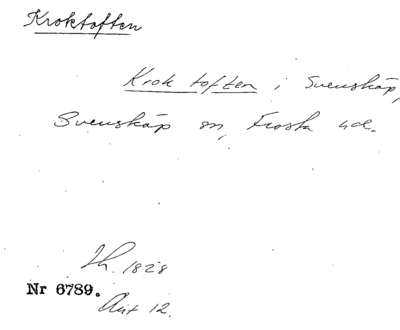 Kroktoften
Krok toften i Svensköp,
Svensköp sn, Frosta hd.
Lh. 1828
Nr 6789.
Akt 12.